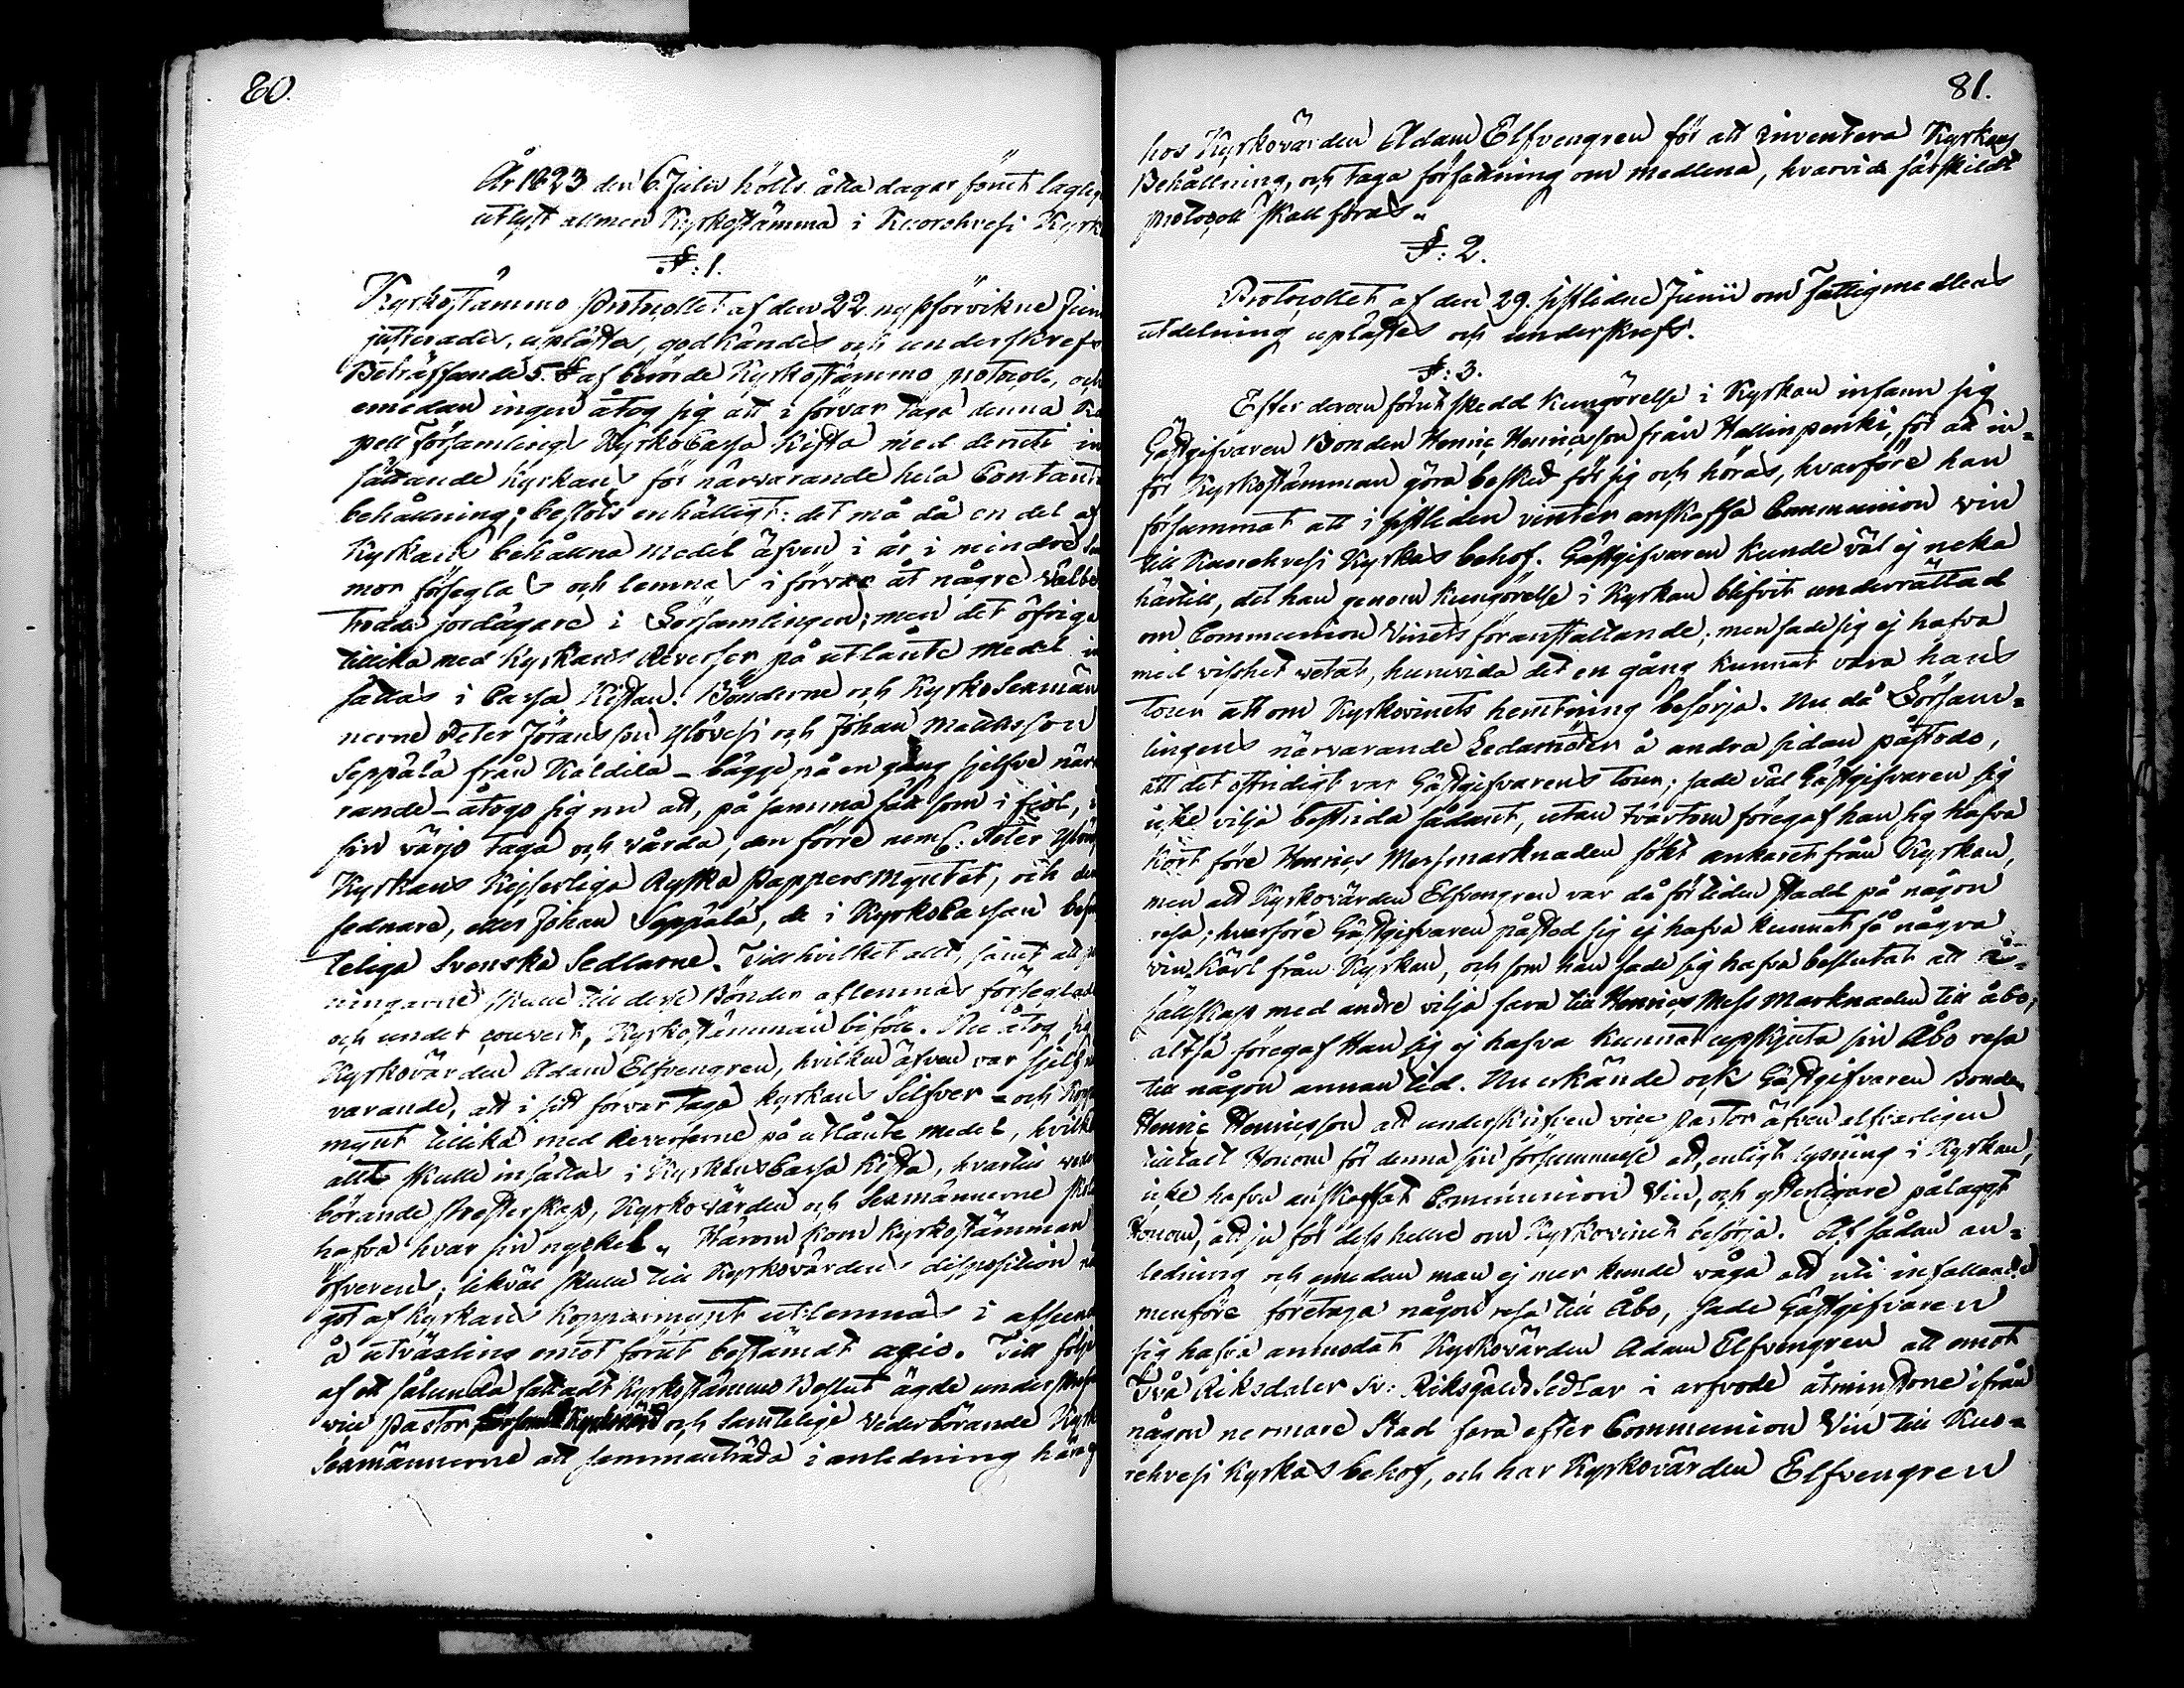 80.
År 1823 den 6 Julii hölts åtta dagar förut lagligen
utlyst allmen Kyrkostämma i Kuorehvesi Kyrk
§: 1.
Kyrkostämmo Protocollet af den 22 nyssförvikne Juni
justerades, uplästes, godkändes och underskrefs
Beträffande 5. § af berörde Kyrkostämmo protocoll, och
emedan ingen åtog sig att i förvar taga denna Ka
pell Församlings KyrkoCassa Kista med deruti in
sättande Kyrkans för närvarande hela Contanta
behållning; beslöts enhälligt: det må då en del af
Kyrkans behållna medel äfven i år i mindre Sum
mor förseglas och lemnas i förvar åt någre Välbe
trodde jordägare i Församlingen; men det öfriga
tillika med Kyrkans Reverser på utlånte medel in
sättas i Cassa Kistan. Bönderne och KyrkoSexmän
nerne Peter Jöransson Ylövesi och Johan Mattsson
Seppälä från Kaldila – bägge nå en gång sjelfve närva
rande – åtogo sig nu att, på samma sätt som i fjol, i
sin värjo taga och vårda, den förre neml: Peter Ylöves
Kyrkans Kejserliga Ryska PappersMyntet, och den
sednare, eller Johan Seppälä, de i KyrkoCassan befin
telige Svenska Sedlarne. Till hvilket allt, samt att pe
ningarne skulle till desse Bönder aflemnas förseglade
och under couvert, Kyrkostämman biföll. Nu åtog sig
Kyrkovärden Adam Elfvengren, hvilken äfven var sjelf när
varande, att i sitt förvar taga kyrkans Silfver - och Koppar
mynt tillika med Reverserne på utlånte medel, hvilket
allt skulle insättas i Kyrkans Cassa Kista, hvartill veder
börande Presterskap, Kyrkovärden och Sexmännerne skola
hafva hvar sin nyckel. Härom kom Kyrkostämman
öfverens; likväl skulle till Kyrkovärdens disposition nå
got af Kyrkans Kopparmynt utlemnas i afseende
å utväxling emot förut bestämdt agio. Till följe
af ett sålunda fattadt Kyrkostämmo Beslut ägde underskrefne
vice Pastor och samtelige Vederbörande Kyrko
Sexmännerne att sammanträda i anledning häraf
81.
hos Kyrkovärden Adam Elfvengren för att inventera Kyrkans
Behållning, och taga författning om medlena, hvarvid särskildt
protocoll skall föras.
§: 2.
Protocollet af den 29. sistliden Junii om Fattigmedlens
utdelning uplästes och underskrefs.
§: 3.
Efter derom förut skedd kungörelse i Kyrkan infann sig
Gästgifvaren Bonden Henric Henricsson från Hallinpenki, för att in=
för Kyrkostämman göra besked för sig och höras, hvarföre han
försummat att i sistliden vinter anskaffa Communion vin
till Kuorehvesi Kyrkas behof. Gästgifvaren kunde väl ej neka
härtill, det han genom kungörelse i Kyrkan blifvit underrättad
om Communion Vinets föranstaltande; men sade sig ej hafva
med visshet vetat, huruvida det en gång kunnat vara hans
tour att om Kyrkovinets hemtning besörja. Nu då Försam=
lingens närvarande Ledamöter å andra sidan påstodo,
att det ostridigt var Gästgifvarens tour; sade väl Gästgifvaren sig
icke vilja bestrida sådant, utan tvärtom föregaf han sig hafva
kort före Henrics Messmarknaden sökt ankaret från Kyrkan,
men att Kyrkovärden Elfvengren var då för tiden stadd på någon
resa; hvarföre Gästgifvaren påstod sig ej hafva kunnat få några
vin Kärl från Kyrkan, och som han sade sig hafva beslutat att i
sällskap med andre vilja fara till Henrics Mess Marknaden till Åbo;
altså föregaf Han sig ej hafva kunnat uppskjuta sin Åbo resa
till någon annan tid. Nu erkände ock Gästgifvaren Bonden
Henric Henricsson att underskrifven vice Pastor äfven alfvarligen
tilltalt Honom för denna sin försummelse att, enligt lysning i Kyrkan,
icke hafva anskaffat Communion Vin, och ytterligare pålaggt
Honom, att ju för dess hellre om Kyrkovinet besörja. Af sådan an=
ledning och emedan man ej mer kunde våga att uti infallande
menföre företaga någon resa till Åbo, sade Gästgifvaren
sig hafva anmodat Kyrkovärden Adam Elfvengren att emot
Två Riksdaler Sv: Riksgälds Sedlar i arfvode åtminstone ifrån
någon närmare Stad fara efter Communion Vin till Kuo=
rehvesi Kyrkas behof, och har Kyrkovärden Elfvengren